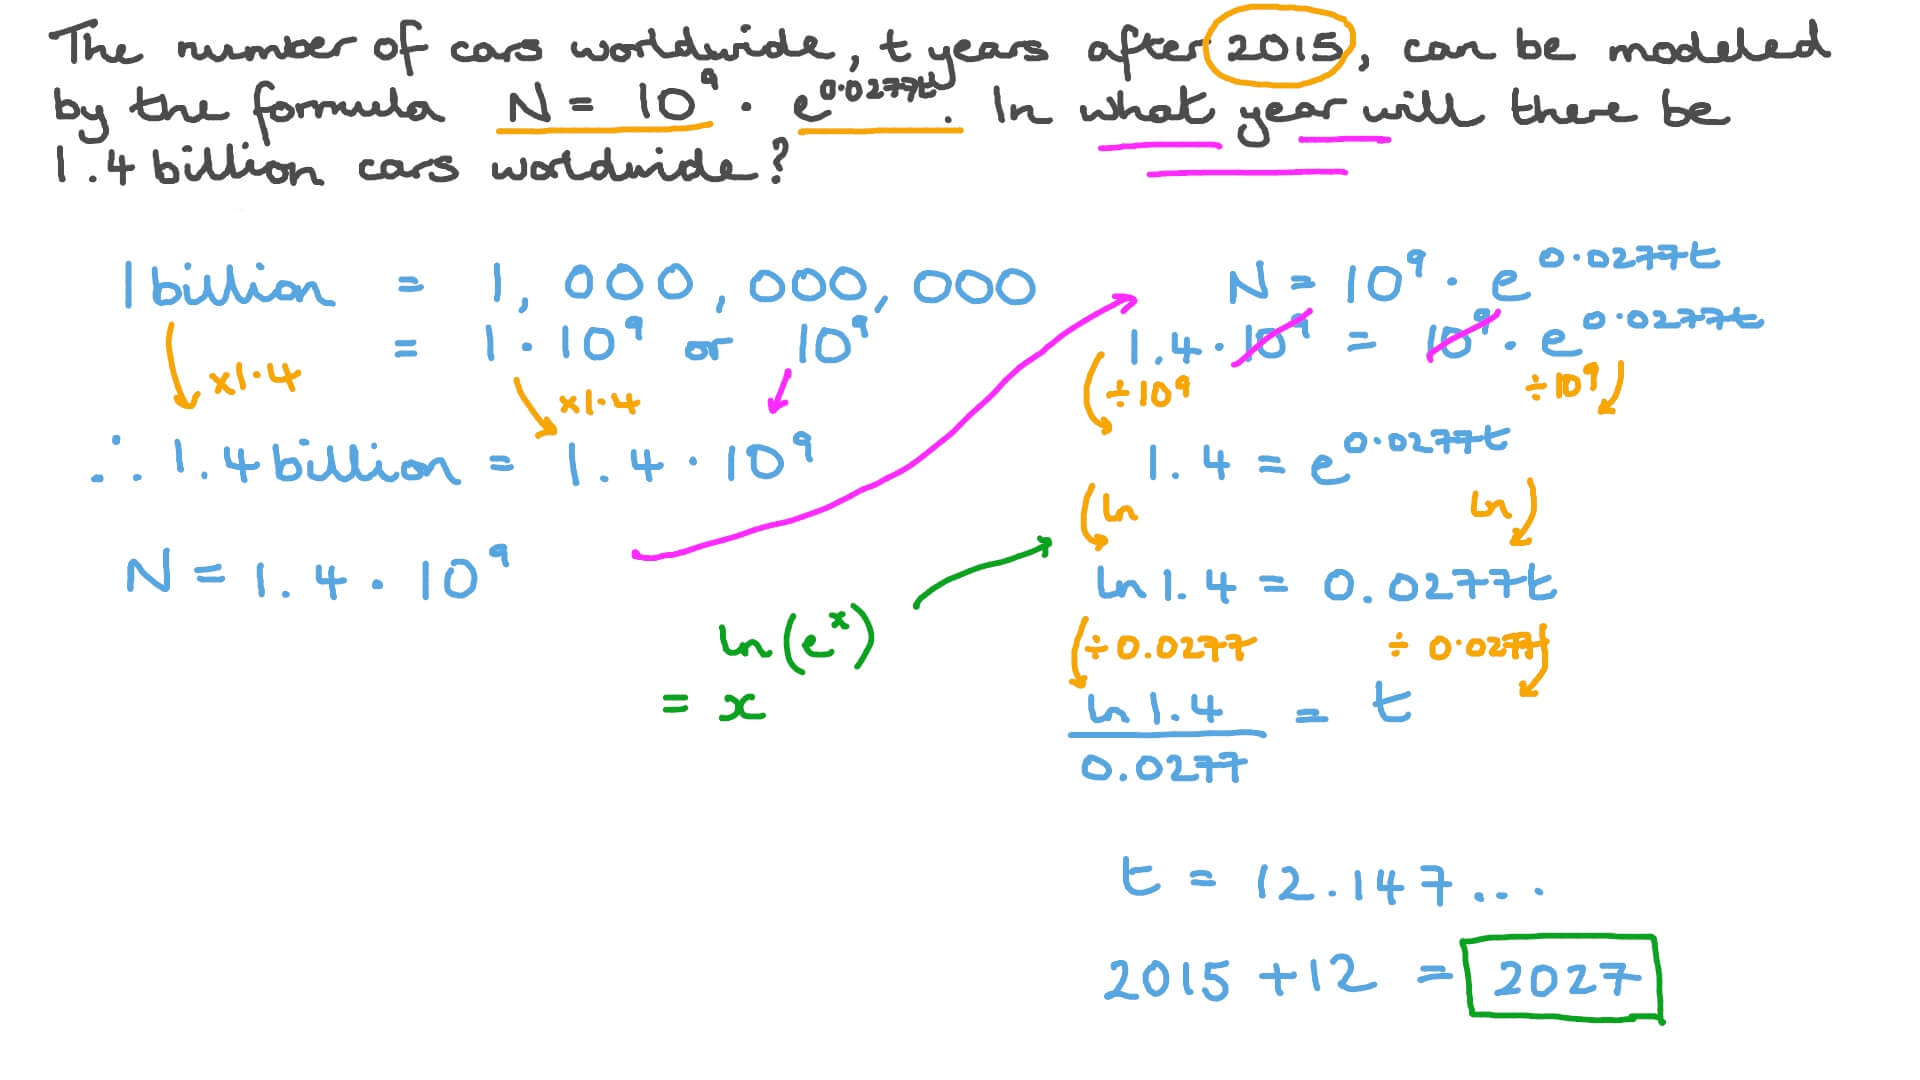 The number of cars worldwide, t years after 2015, can be modeled
by the formula N = 10⁹ · e^0.0277t. In what year will there be
1.4 billion cars worldwide?
1 billion = 1,000,000,000
= 1 · 10⁹ or 10⁹
×1.4 ×1.4
∴ 1.4 billion = 1.4 · 10⁹
N = 1.4 · 10⁹
ln(eˣ)
= x
N = 10⁹ · e^0.0277t
1.4 · 10⁹ = 10⁹ · e^0.0277t
÷10⁹ ÷10⁹
1.4 = e^0.0277t
ln ln
ln 1.4 = 0.0277t
÷0.0277 ÷0.0277
ln 1.4 / 0.0277 = t
t = 12.147...
2015 + 12 = 2027